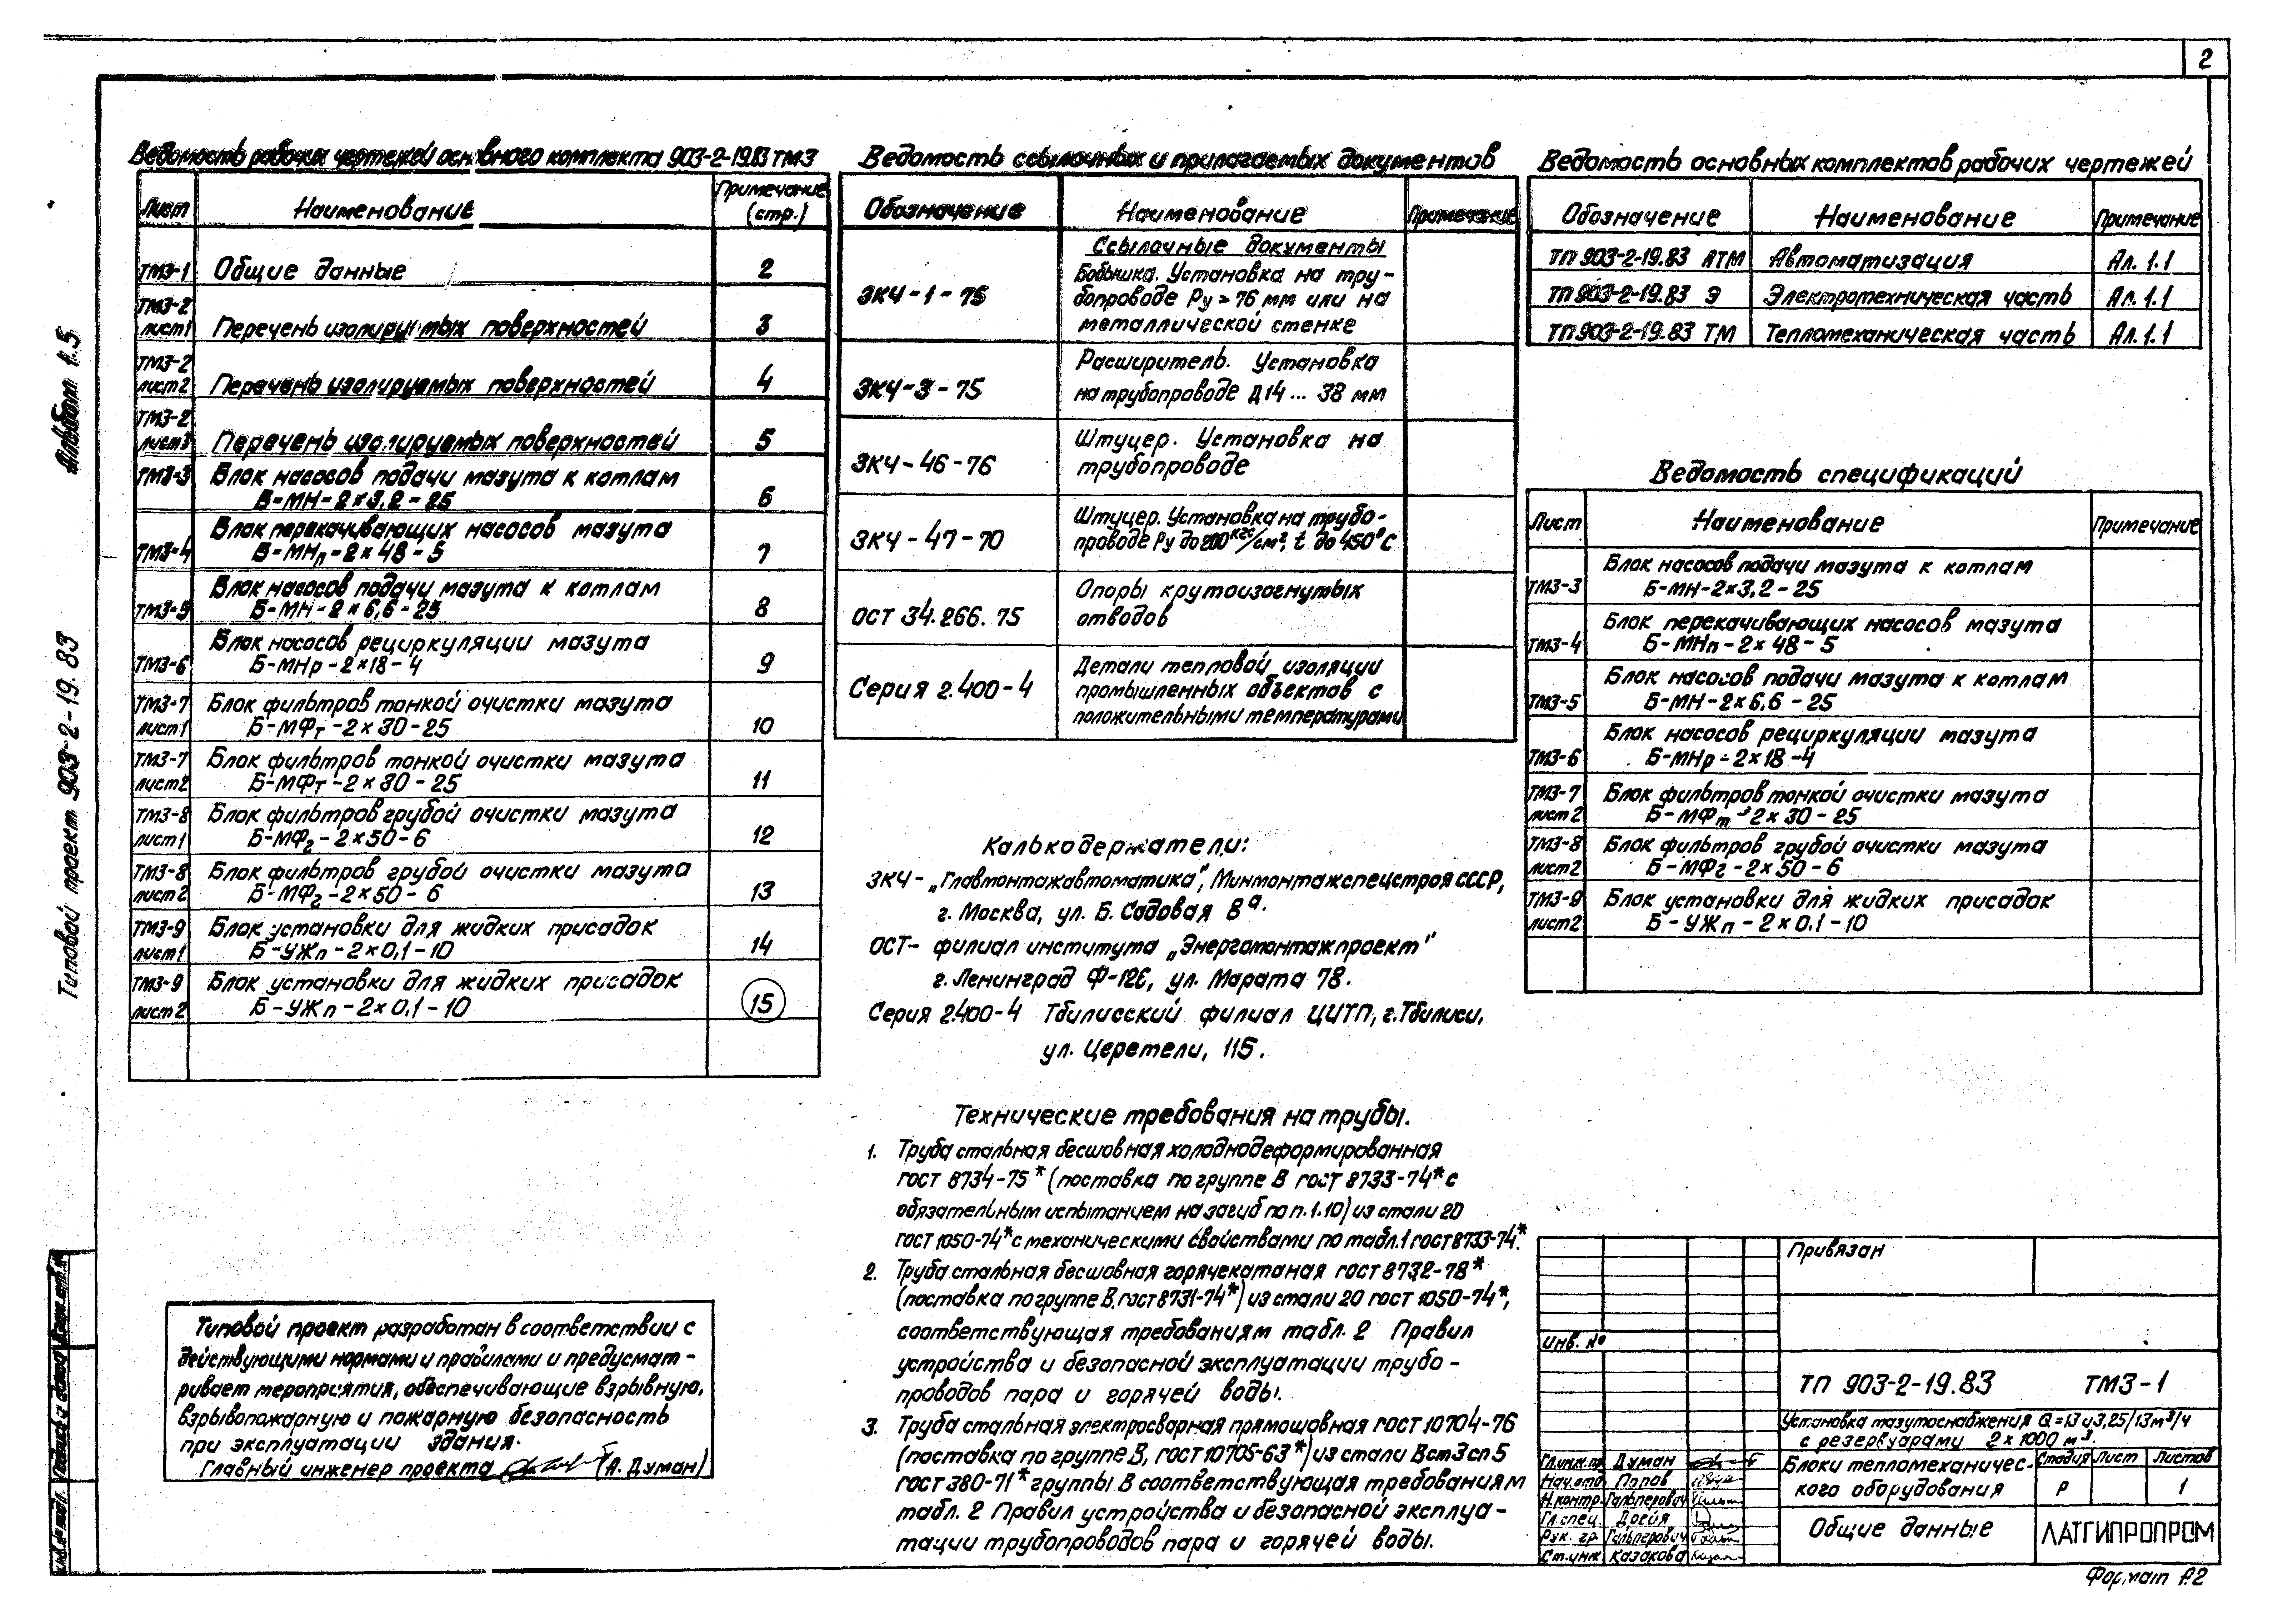 2
Альбом 1.5
Типовой проект 903-2-19.83
Ведомость рабочих чертежей основного комплекта 903-2-19.83 ТМ3
Лист
Наименование
Примечание
(стр.)
ТМ3-1
Общие данные
2
ТМ3-2
лист1
Перечень изолируемых поверхностей
3
ТМ3-2
лист2
Перечень изолируемых поверхностей
4
ТМ3-2
лист3
Перечень изолируемых поверхностей
5
ТМ3-3
Блок насосов подачи мазута к котлам
Б-МН-2×3,2-25
6
ТМ3-4
Блок перекачивающих насосов мазута
Б-МНп-2×48-5
7
ТМ3-5
Блок насосов подачи мазута к котлам
Б-МН-2×6,6-25
8
ТМ3-6
Блок насосов рециркуляции мазута
Б-МНр-2×18-4
9
ТМ3-7
лист1
Блок фильтров тонкой очистки мазута
Б-МФт-2×30-25
10
ТМ3-7
лист2
Блок фильтров тонкой очистки мазута
Б-МФт-2×30-25
11
ТМ3-8
лист1
Блок фильтров грубой очистки мазута
Б-МФг-2×50-6
12
ТМ3-8
лист2
Блок фильтров грубой очистки мазута
Б-МФг-2×50-6
13
ТМ3-9
лист1
Блок установки для жидких присадок
Б-УЖп-2×0,1-10
14
ТМ3-9
лист2
Блок установки для жидких присадок
Б-УЖп-2×0,1-10
15
Типовой проект разработан в соответствии с
действующими нормами и правилами и предусмат-
ривает мероприятия, обеспечивающие взрывную,
взрывопожарную и пожарную безопасность
при эксплуатации здания.
Главный инженер проекта (А. Думан)
Ведомость ссылочных и прилагаемых документов
Обозначение
Наименование
Примечание
Ссылочные документы
ЗК4-1-75
Бобышка. Установка на тру-
бопроводе Ру > 76 мм или на
металлической стенке
ЗК4-3-75
Расширитель. Установка
на трубопроводе Д14... 38 мм
ЗК4-46-76
Штуцер. Установка на
трубопроводе
ЗК4-47-70
Штуцер. Установка на трубо-
проводе Ру до 200 кгс/см², t до 450°С
ОСТ 34.266.75
Опоры крутоизогнутых
отводов
Серия 2.400-4
Детали тепловой изоляции
промышленных объектов с
положительными температурами
Калькодержатели:
ЗК4- „Главмонтажавтоматика", Минмонтажспецстроя СССР,
г. Москва, ул. Б. Садовая 8а.
ОСТ- филиал института „Энергомонтажпроект"
г. Ленинград Ф-126, ул. Марата 78.
Серия 2.400-4 Тбилисский филиал ЦИТП, г.Тбилиси,
ул. Церетели, 115.
Технические требования на трубы.
1. Труба стальная бесшовная холоднодеформированная
ГОСТ 8734-75* (поставка по группе В ГОСТ 8733-74* с
обязательным испытанием на загиб по п.1.10) из стали 20
ГОСТ 1050-74* с механическими свойствами по табл.1 ГОСТ 8733-74*.
2. Труба стальная бесшовная горячекатаная ГОСТ 8732-78*
(поставка по группе В, ГОСТ 8731-74*) из стали 20 ГОСТ 1050-74*,
соответствующая требованиям табл. 2 Правил
устройства и безопасной эксплуатации трубо-
проводов пара и горячей воды.
3. Труба стальная электросварная прямошовная ГОСТ 10704-76
(поставка по группе В, ГОСТ 10705-63*) из стали Вст3сп5
ГОСТ 380-71* группы В соответствующая требованиям
табл. 2 Правил устройства и безопасной эксплуа-
тации трубопроводов пара и горячей воды.
Ведомость основных комплектов рабочих чертежей
Обозначение
Наименование
Примечание
ТП 903-2-19.83 АТМ
Автоматизация
Ал. 1.1
ТП 903-2-19.83 Э
Электротехническая часть
Ал. 1.1
ТП 903-2-19.83 ТМ
Тепломеханическая часть
Ал. 1.1
Ведомость спецификаций
Лист
Наименование
Примечание
ТМ3-3
Блок насосов подачи мазута к котлам
Б-МН-2×3,2-25
ТМ3-4
Блок перекачивающих насосов мазута
Б-МНп-2×48-5
ТМ3-5
Блок насосов подачи мазута к котлам
Б-МН-2×6,6-25
ТМ3-6
Блок насосов рециркуляции мазута
Б-МНр-2×18-4
ТМ3-7
лист2
Блок фильтров тонкой очистки мазута
Б-МФт-2×30-25
ТМ3-8
лист2
Блок фильтров грубой очистки мазута
Б-МФг-2×50-6
ТМ3-9
лист2
Блок установки для жидких присадок
Б-УЖп-2×0,1-10
Привязан
Инв. №
ТП 903-2-19.83 ТМ3-1
Установка мазутоснабжения Q=13 и 3,25/13 м³/ч
с резервуарами 2×1000 м³.
Гл.инж.пр. Думан
Нач.отд. Попов
Н.контр. Гальперович
Гл.спец. Дрейя
Рук. гр. Гальперович
Ст.инж. Казакова
Блоки тепломеханичес-
кого оборудования
Стадия
Лист
Листов
Р
1
Общие данные
ЛАТГИПРОПРОМ
Формат А2